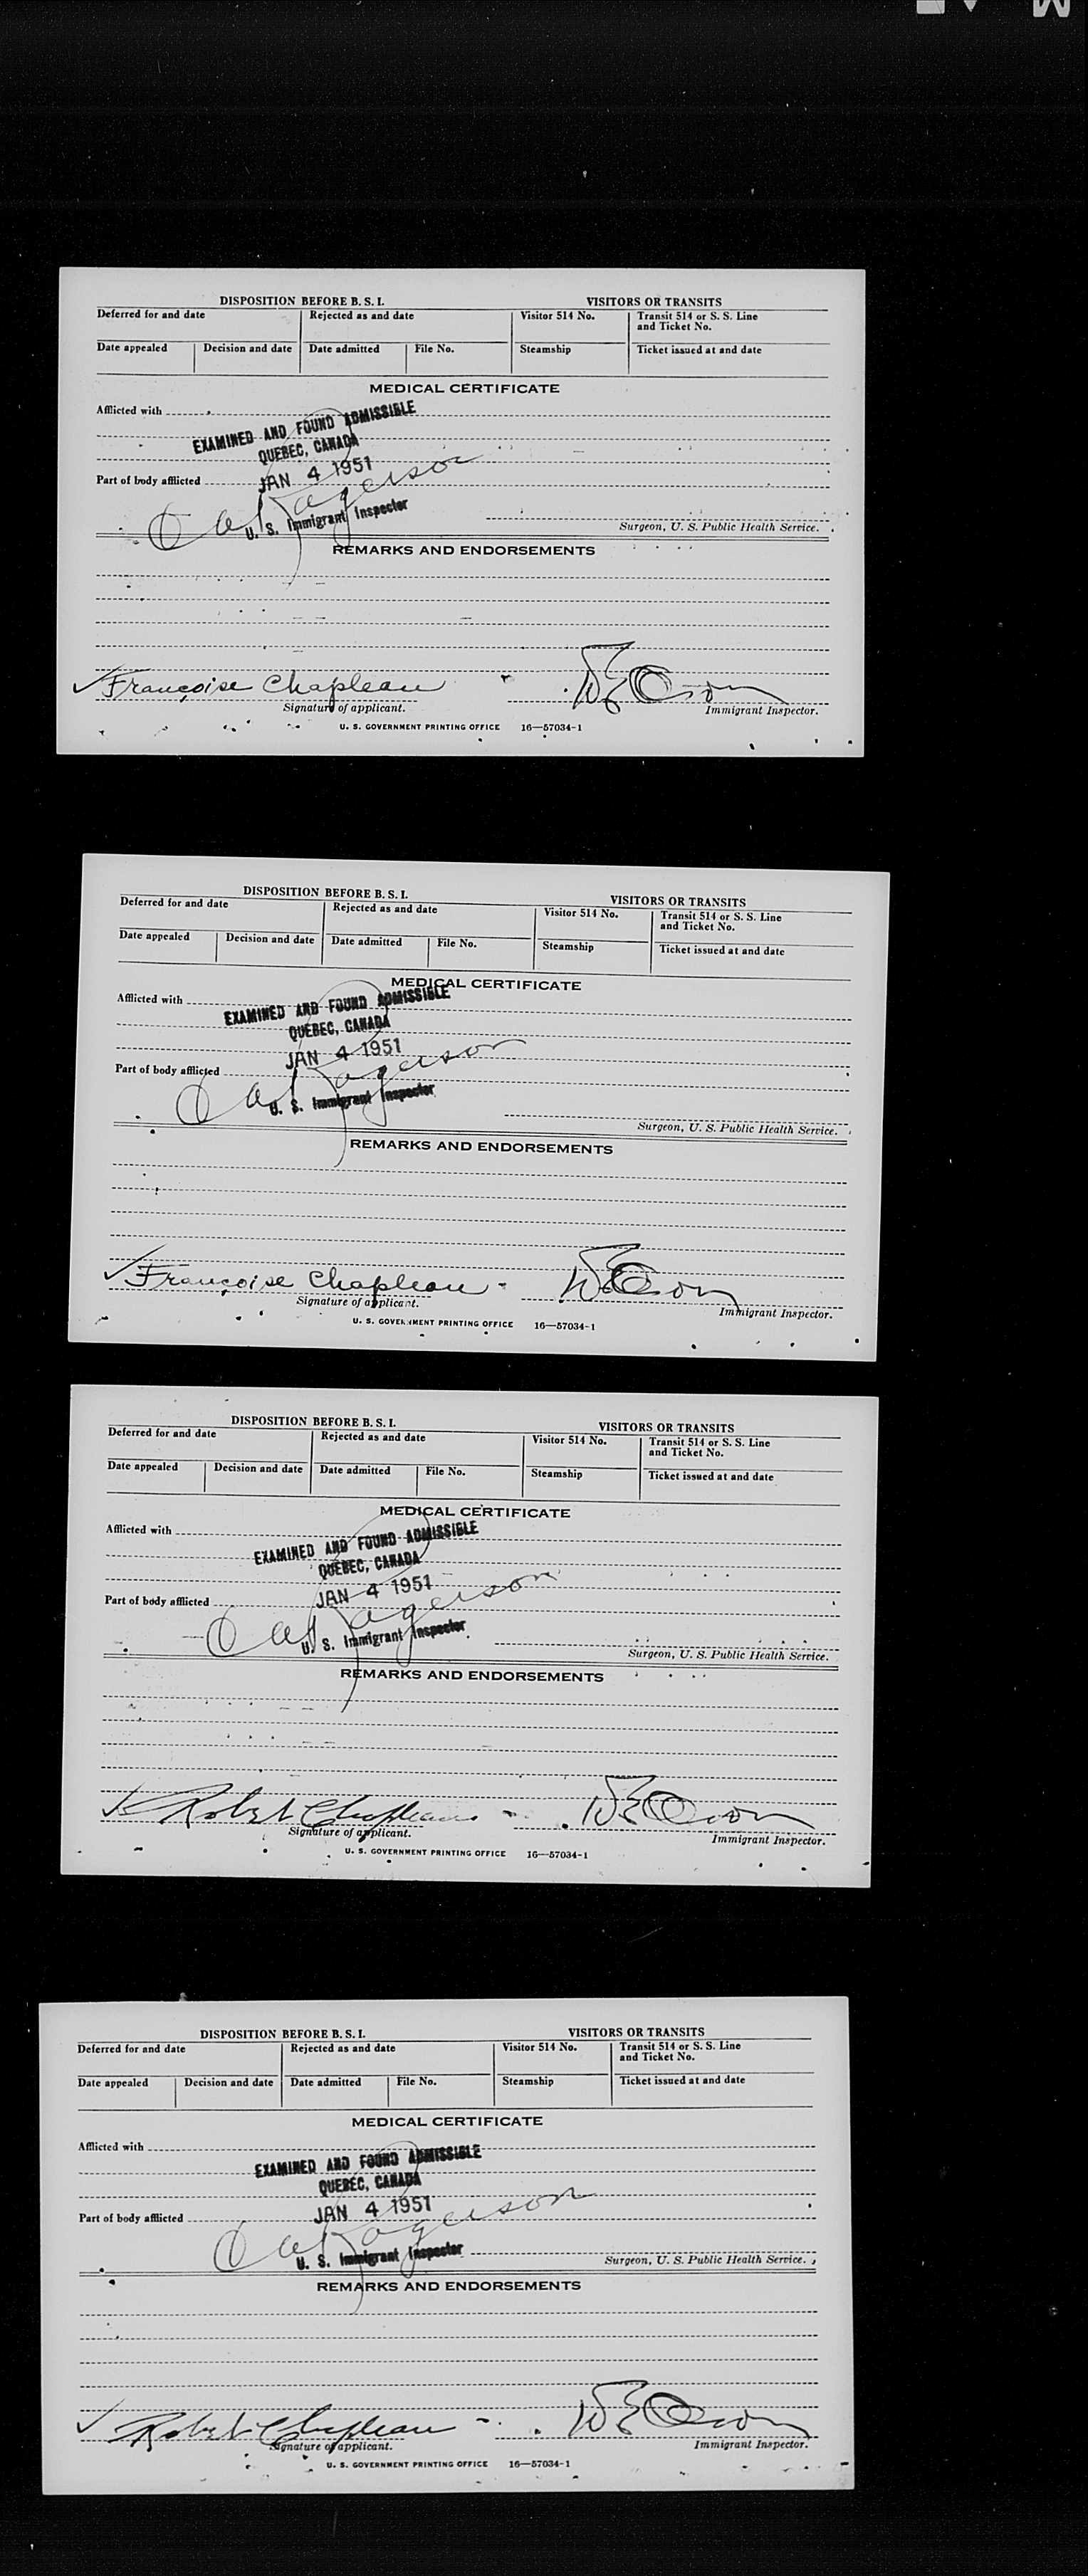 DISPOSITION BEFORE B. S. I. VISITORS OR TRANSITS
Deferred for and date Rejected as and date Visitor 514 No. Transit 514 or S. S. Line and Ticket No.
Date appealed Decision and date Date admitted File No. Steamship Ticket issued at and date
MEDICAL CERTIFICATE
Afflicted with
EXAMINED AND FOUND ADMISSIBLE
QUEBEC, CANADA
JAN 4 1951
Part of body afflicted
U. S. Immigrant Inspector
Surgeon, U. S. Public Health Service.
REMARKS AND ENDORSEMENTS
Françoise Chapleau
Signature of applicant. Immigrant Inspector.
U. S. GOVERNMENT PRINTING OFFICE 16—57034-1
DISPOSITION BEFORE B. S. I. VISITORS OR TRANSITS
Deferred for and date Rejected as and date Visitor 514 No. Transit 514 or S. S. Line and Ticket No.
Date appealed Decision and date Date admitted File No. Steamship Ticket issued at and date
MEDICAL CERTIFICATE
Afflicted with
EXAMINED AND FOUND ADMISSIBLE
QUEBEC, CANADA
JAN 4 1951
Part of body afflicted
U. S. Immigrant Inspector
Surgeon, U. S. Public Health Service.
REMARKS AND ENDORSEMENTS
Françoise Chapleau
Signature of applicant. Immigrant Inspector.
U. S. GOVERNMENT PRINTING OFFICE 16—57034-1
DISPOSITION BEFORE B. S. I. VISITORS OR TRANSITS
Deferred for and date Rejected as and date Visitor 514 No. Transit 514 or S. S. Line and Ticket No.
Date appealed Decision and date Date admitted File No. Steamship Ticket issued at and date
MEDICAL CERTIFICATE
Afflicted with
EXAMINED AND FOUND ADMISSIBLE
QUEBEC, CANADA
JAN 4 1951
Part of body afflicted
U. S. Immigrant Inspector
Surgeon, U. S. Public Health Service.
REMARKS AND ENDORSEMENTS
Robert Chapleau
Signature of applicant. Immigrant Inspector.
U. S. GOVERNMENT PRINTING OFFICE 16—57034-1
DISPOSITION BEFORE B. S. I. VISITORS OR TRANSITS
Deferred for and date Rejected as and date Visitor 514 No. Transit 514 or S. S. Line and Ticket No.
Date appealed Decision and date Date admitted File No. Steamship Ticket issued at and date
MEDICAL CERTIFICATE
Afflicted with
EXAMINED AND FOUND ADMISSIBLE
QUEBEC, CANADA
JAN 4 1951
Part of body afflicted
U. S. Immigrant Inspector
Surgeon, U. S. Public Health Service.
REMARKS AND ENDORSEMENTS
Robert Chapleau
Signature of applicant. Immigrant Inspector.
U. S. GOVERNMENT PRINTING OFFICE 16—57034-1